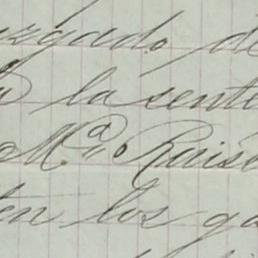 uzgado de
la sente
Mª Ruise
ten los ga